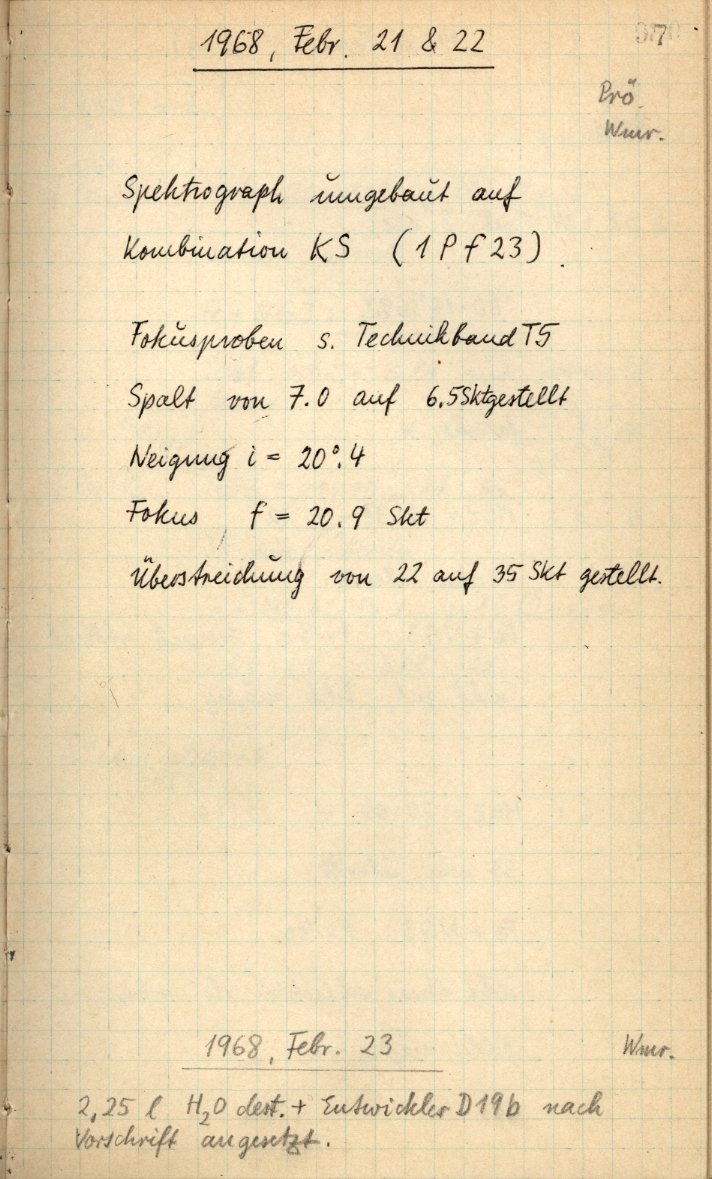 1968, Febr. 21 & 22
Prö.
Wmr.
Spektrograph umgebaut auf
Kombination KS (1 P f 23)
Fokusproben s. Technikband T5
Spalt von 7.0 auf 6.5 Skt gestellt
Neigung i = 20°.4
Fokus f = 20.9 Skt
Überstreichung von 22 auf 35 Skt gestellt.
1968, Febr. 23
Wmr.
2,25 l H₂O dest. + Entwickler D19b nach
Vorschrift angesetzt.